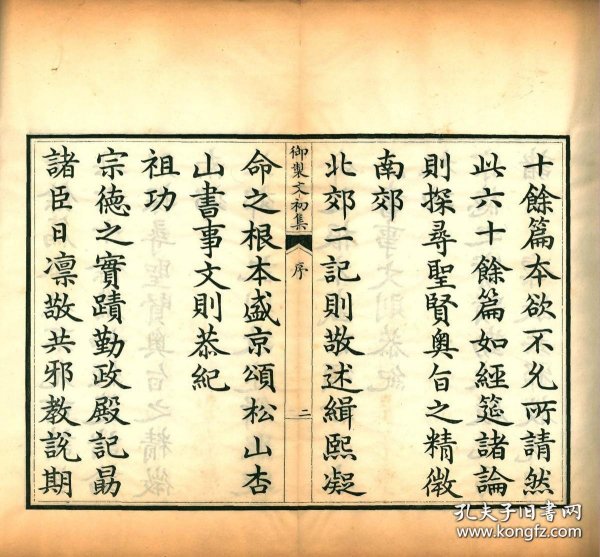 十餘篇本欲不允所請然
此六十餘篇如經筵諸論
則探尋聖賢奧旨之精微
南郊
北郊二記則敬述緝熙凝
御製文初集
序
二
命之根本盛京頌松山杏
山書事文則恭紀
祖功
宗德之實蹟勤政殿記勗
諸臣日凜敬共邪教說期
孔夫子旧书网
www.kongfz.com